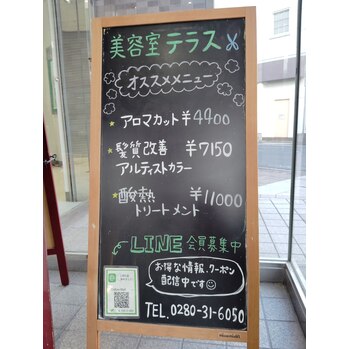 美容室テラス
オススメメニュー
アロマカット ¥4400
髪質改善 ¥7150
アルティストカラー
酸熱 ¥11000
トリートメント
LINE会員募集中
お得な情報、クーポン
配信中です
TEL. 0280-31-6050